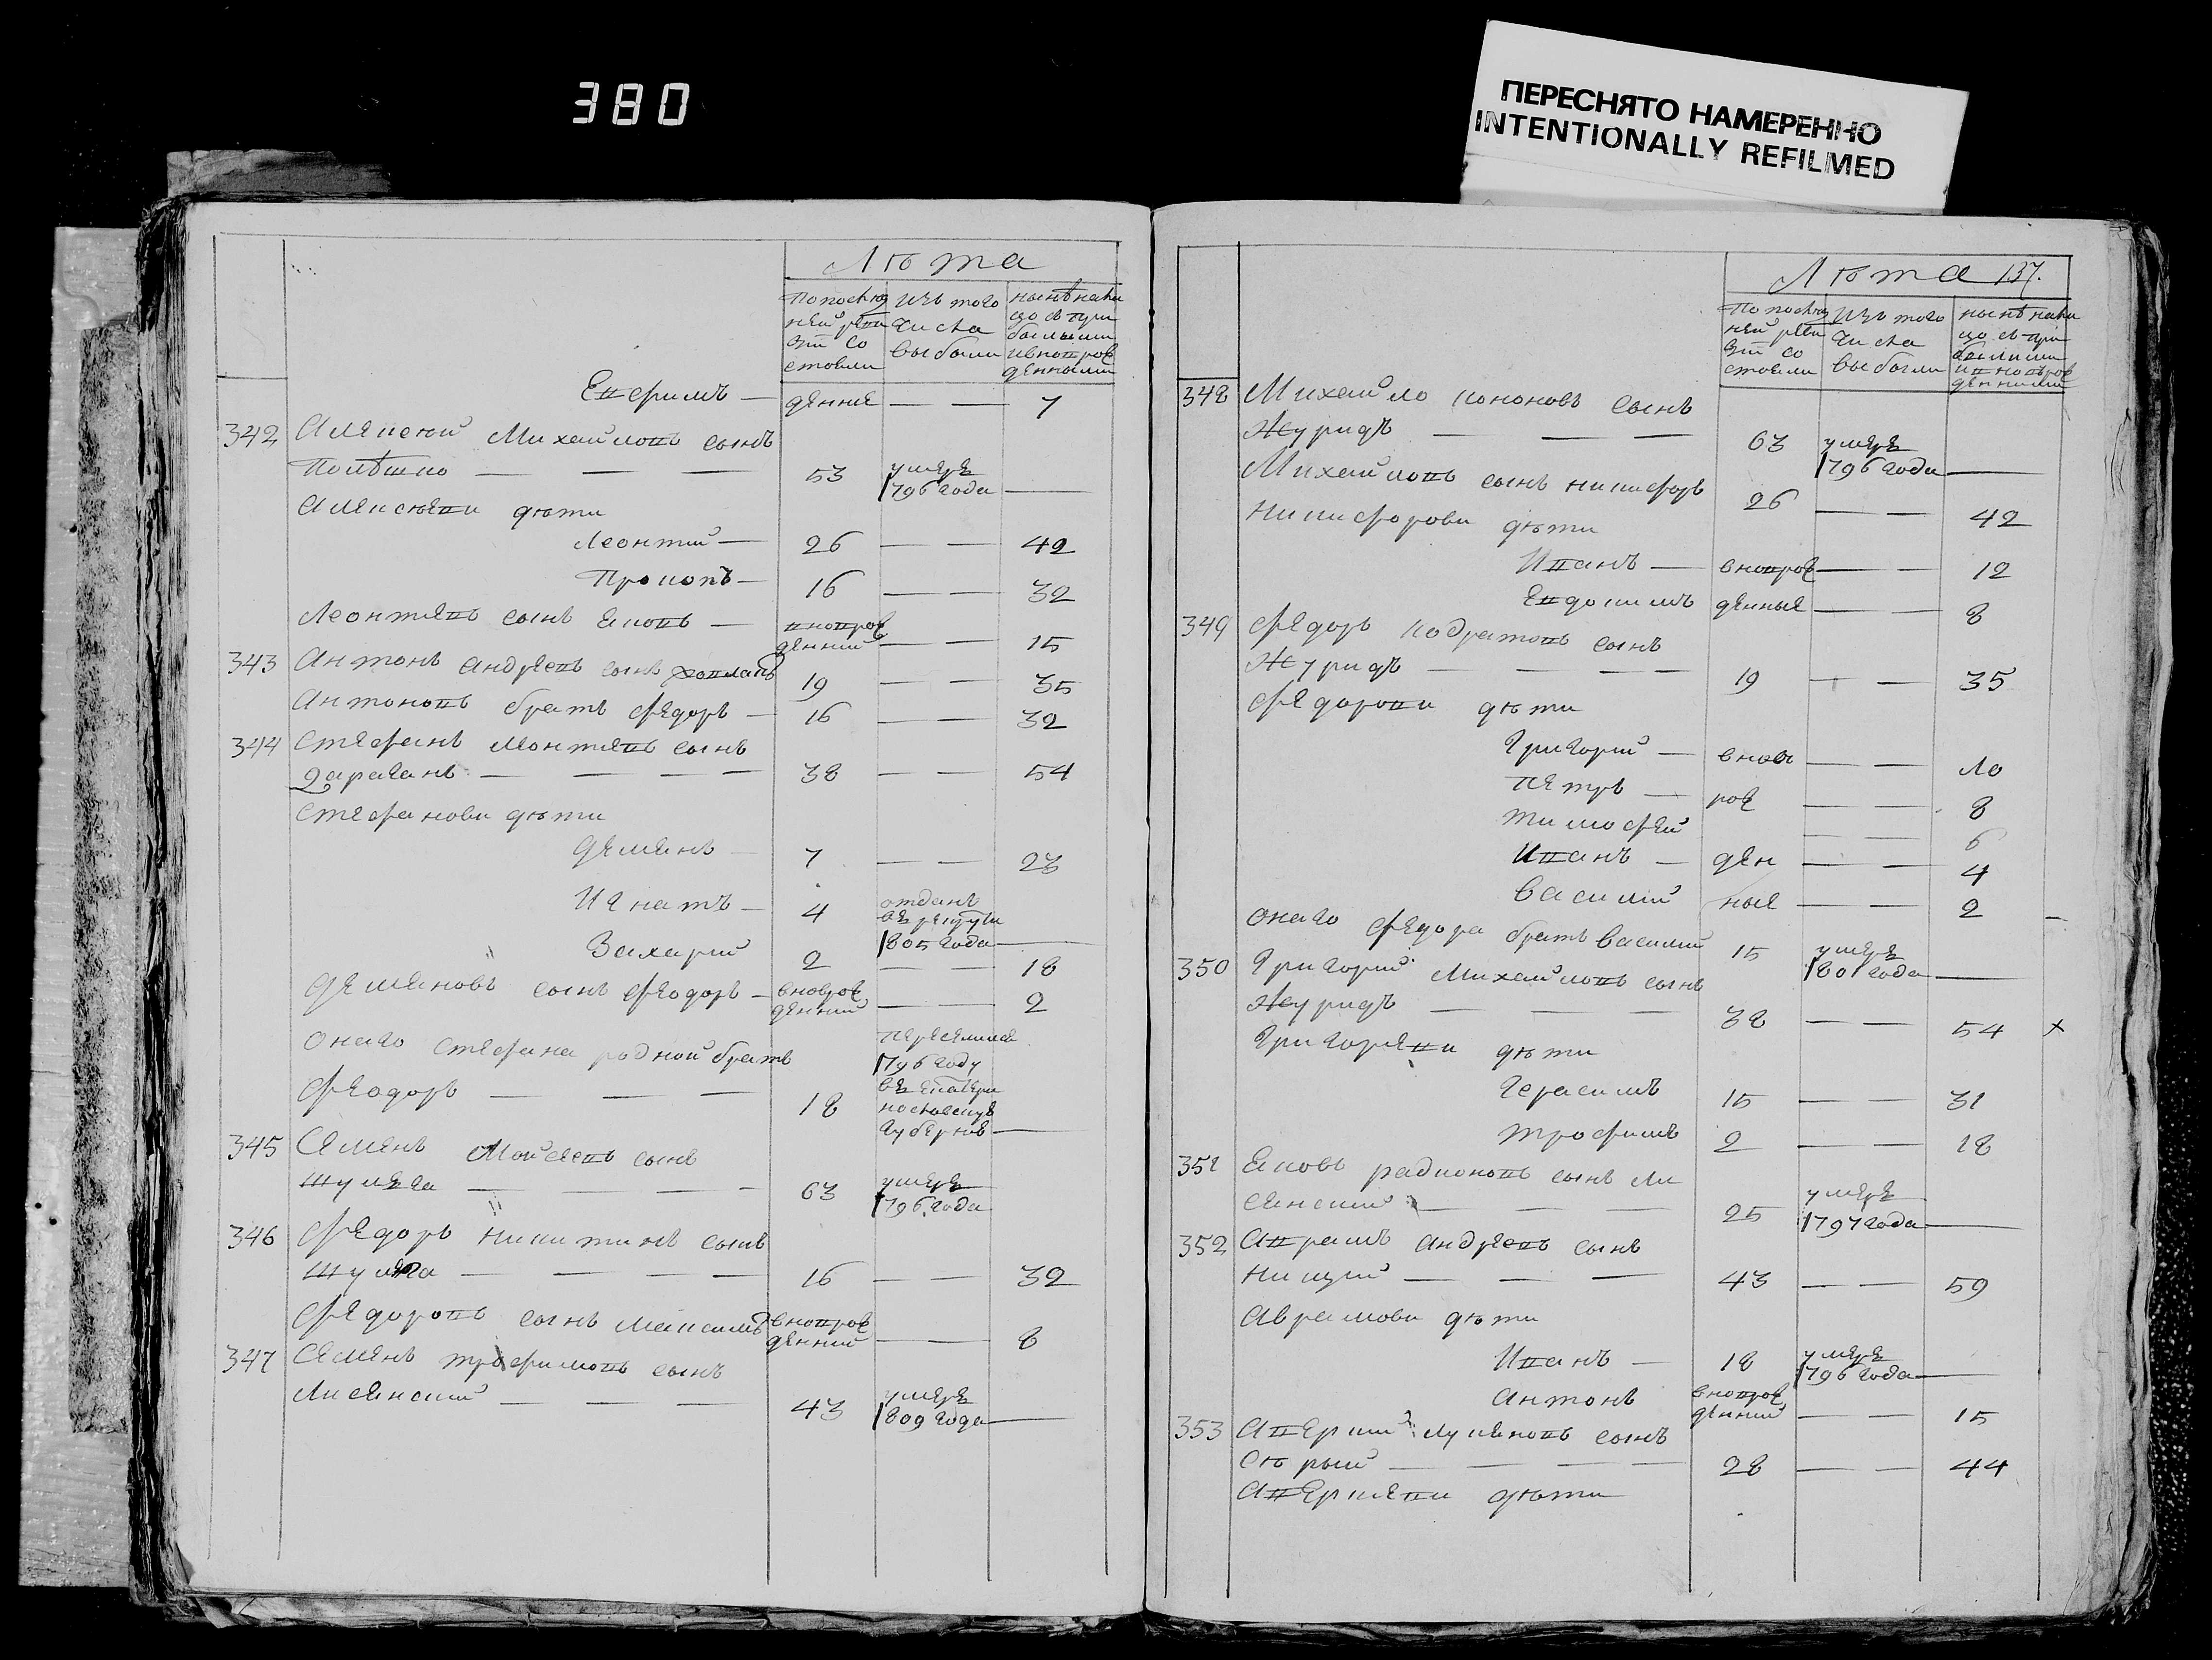 380
ПЕРЕСНЯТО НАМЕРЕННО
INTENTIONALLY REFILMED
Лѣта
По послѣд ней реви зіи со стояли
изъ того числа выбыли
нынѣ на ли цо съ при былыми и вновь рож денными
Евфимъ — денние — — 7
342 Алексѣй Михайловъ сынъ
— — — 53 умре 1796 года —
Алексѣеви дѣти
Леонтий — 26 — — 42
Прокопъ — 16 — — 32
Леонтиевъ сынъ Яковъ — вновь рож денний — — 15
343 Антонъ Андреевъ сынъ 19 — — 35
Антоновъ братъ Федоръ — 16 — — 32
344 Стефанъ Леонтиевъ сынъ
Дараганъ — — — — 38 — — 54
Стефанови дѣти
Демянъ — 7 — — 23
Игнатъ — 4 отданъ въ рекруты 1805 года —
Захарий 2 — — 18
Демяновъ сынъ Феодоръ — вновь рож денний — — 2
Онаго Стефана родной братъ
Феодоръ — — — 18 переселился 1796 году въ Екатери нославскую губернию —
345 Семенъ Мойсеевъ сынъ
Шуляга — — — — 63 умре 1796 года
346 Федоръ Никитинъ сынъ
Шуляга — — — — 16 — — 32
Федоровъ сынъ Максимъ вновь рож денний — — 8
347 Семенъ Трофимовъ сынъ
Лисянский — — — 43 умре 1809 года —
Лѣта 137.
По послѣд ней реви зіи со стояли
изъ того числа выбыли
нынѣ на ли цо съ при былыми и вновь рож денними
348 Михайло Кононовъ сынъ
Журидъ — — — 63 умре 1796 года —
Михайловъ сынъ Никифоръ 26 — — 42
Никифорови дѣти
Иванъ — вновь рож — — 12
Евдокимъ денные — — 8
349 Федоръ Кодратовъ сынъ
Журидъ — — — 19 — — 35
Федорови дѣти
Григорий — вновь — — 10
Петръ — рож — — 8
Тимофей — — 6
Иванъ — ден — — 4
Василий ные — — 2
Онаго Федора братъ Василий 15 умре 1801 года —
350 Григорий Михайловъ сынъ
Журидъ — — — 38 — — 54 ×
Григореви дѣти
Герасимъ 15 — — 31
Трофимъ 2 — — 18
351 Яковъ Радионовъ сынъ Ли
сянский — — — 25 умре 1797 года —
352 Аврамъ Андреевъ сынъ
Нищий — — — 43 — — 59
Аврамови дѣти
Иванъ — 18 умре 1796 года —
Антонъ вновь рож денний — — 15
353 Аверкий Лукяновъ сынъ
Сѣрый — — — 28 — — 44
Аверкиеви дѣти